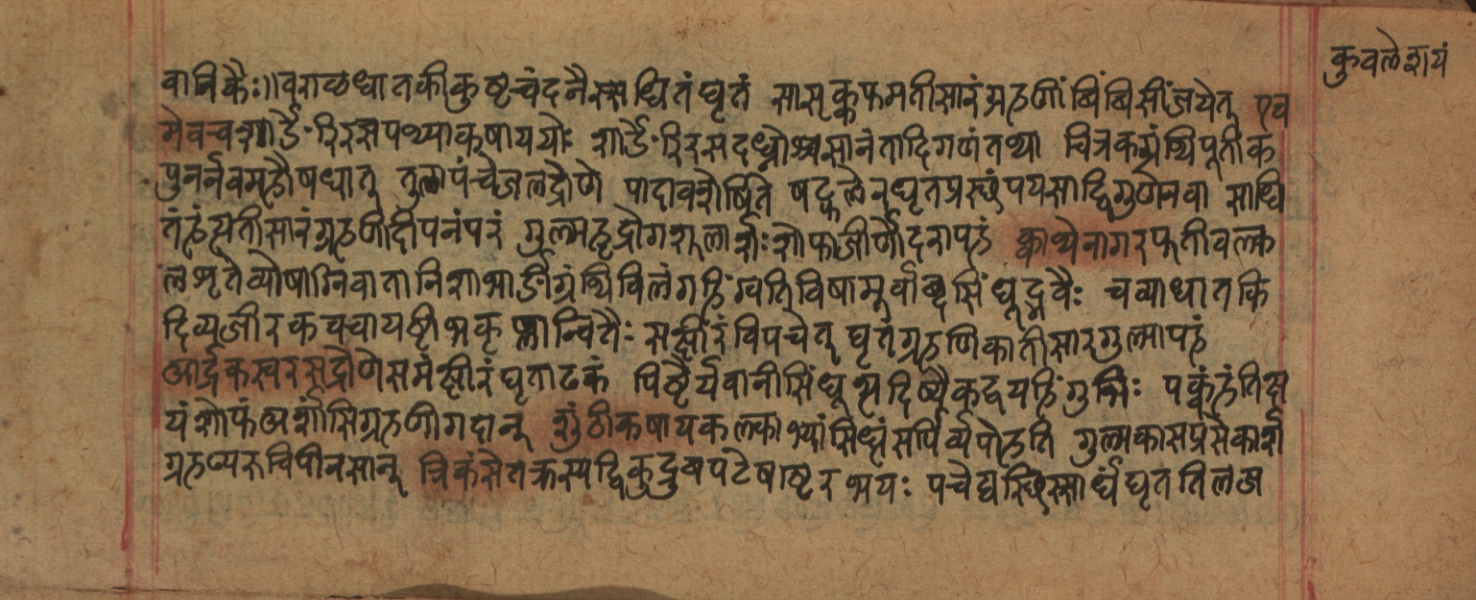 कुवलेशयं
वानिकैः॥वराळधातकीकुष्टचंदनैस्साधितंघृतं सासृक्कफमतीसारंग्रहणींबिंबिसींजयेत् एव
मेवचशार्ङेरिरसपथ्याकषाययोः शार्ङेरिरसदध्नोश्चसानंतादिगणंतथा चित्रकग्रंथिपूतीक
पुनर्नवमहौषधात् तुलापंचेजलद्रोणे पादावशेषितं षट्पलेनघृतप्रस्थंपयसाद्विगुणेनवा साधि
तंहंत्यतीसारंग्रहणीदीपनंपरं गुल्महृद्रोगशूलार्शःशोफाजीर्णोदरापहं क्वाथेनागरपूतीवल्क
लशृतेव्योषाग्निवातानिशाभार्ङीग्रंथिविलंगहिंग्वतिविषामूर्वाब्दसिंधूद्भवैः चव्याधातकि
दिव्यजीरकवचायष्टीभकृष्णान्वितैः सक्षीरंविपचेत् घृतंग्रहणिकातीसारगुल्मापहं
आर्द्रकस्वरसद्रोणेसमंक्षीरंघृताढकं पिष्टैर्यवानीसिंधूभृदिप्यैकद्वयहिंगुभिः पक्वंहंतिक्ष
यंशोफंअर्शांसिग्रहणीगदान् शुंठीकषायकल्काभ्यांसिद्धंसर्पिर्व्यपोहति गुल्मकासप्रसेकार्श
ग्रहण्यरुचिपीनसान् त्रिकंसेतक्रस्यद्विकुद्रुवपटेषाष्टरभयः पचेद्यस्थिस्सार्धंघृततिलज